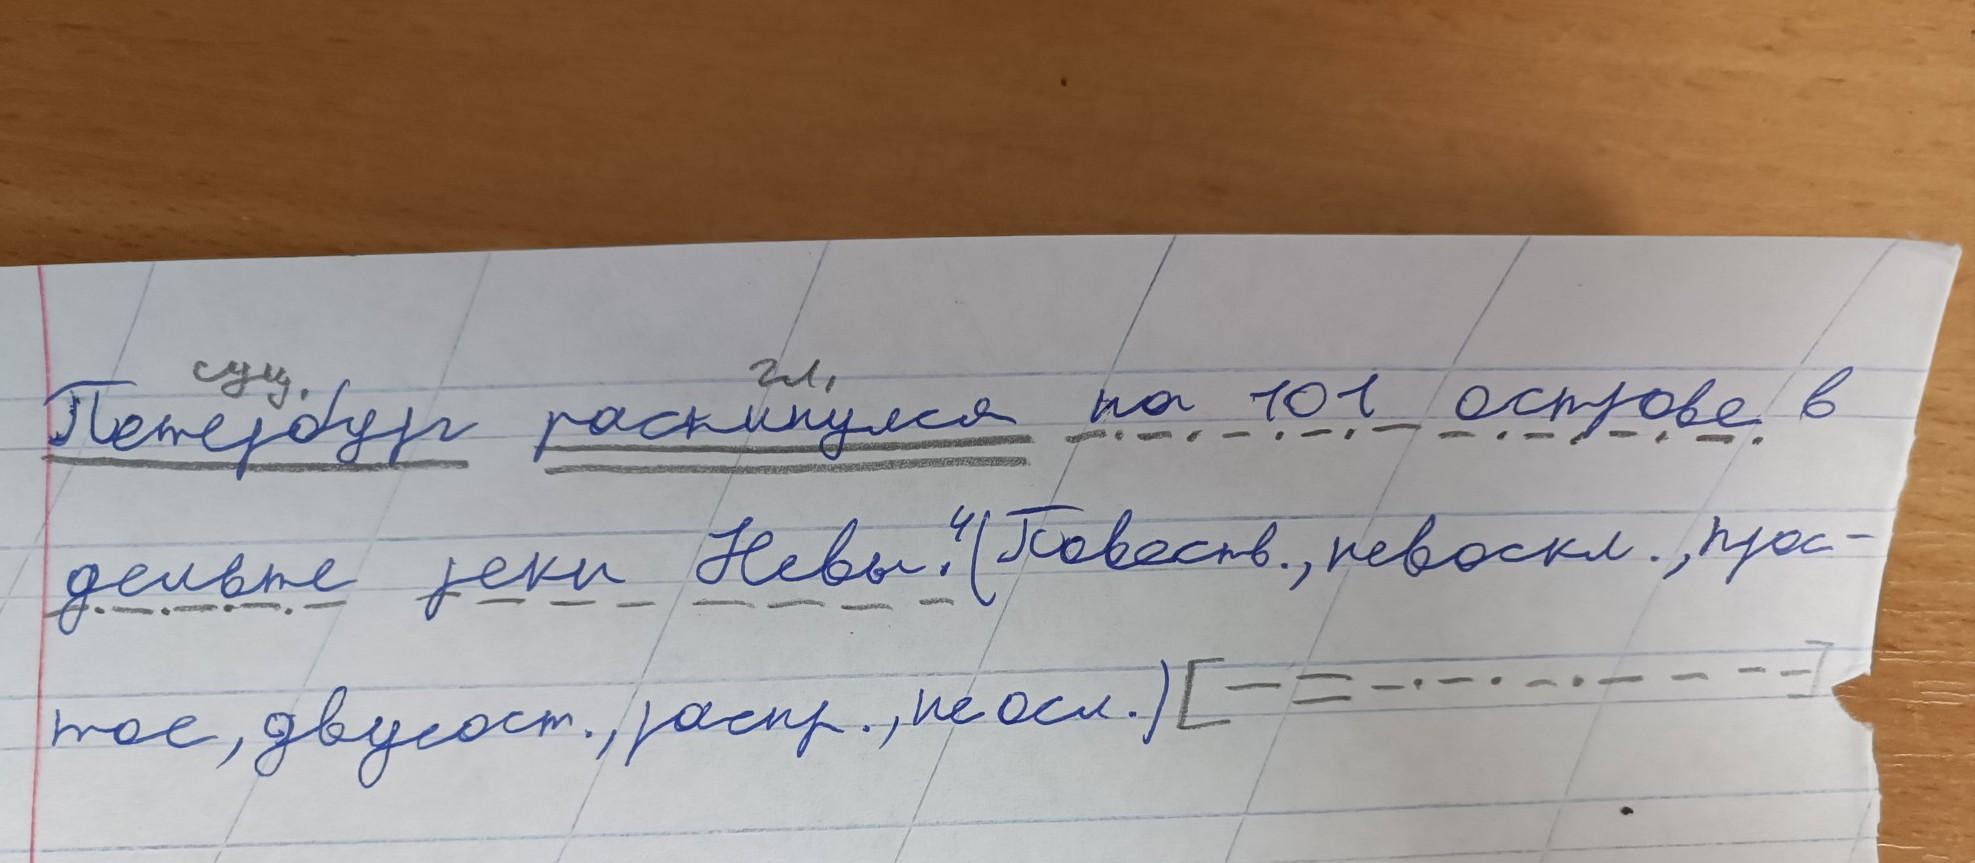 сущ. гл.
Петербург раскинулся на 101 острове в
дельте реки Невы.⁴ (Повеств., невоскл., прос-
тое, двусост., распр., неосл.)